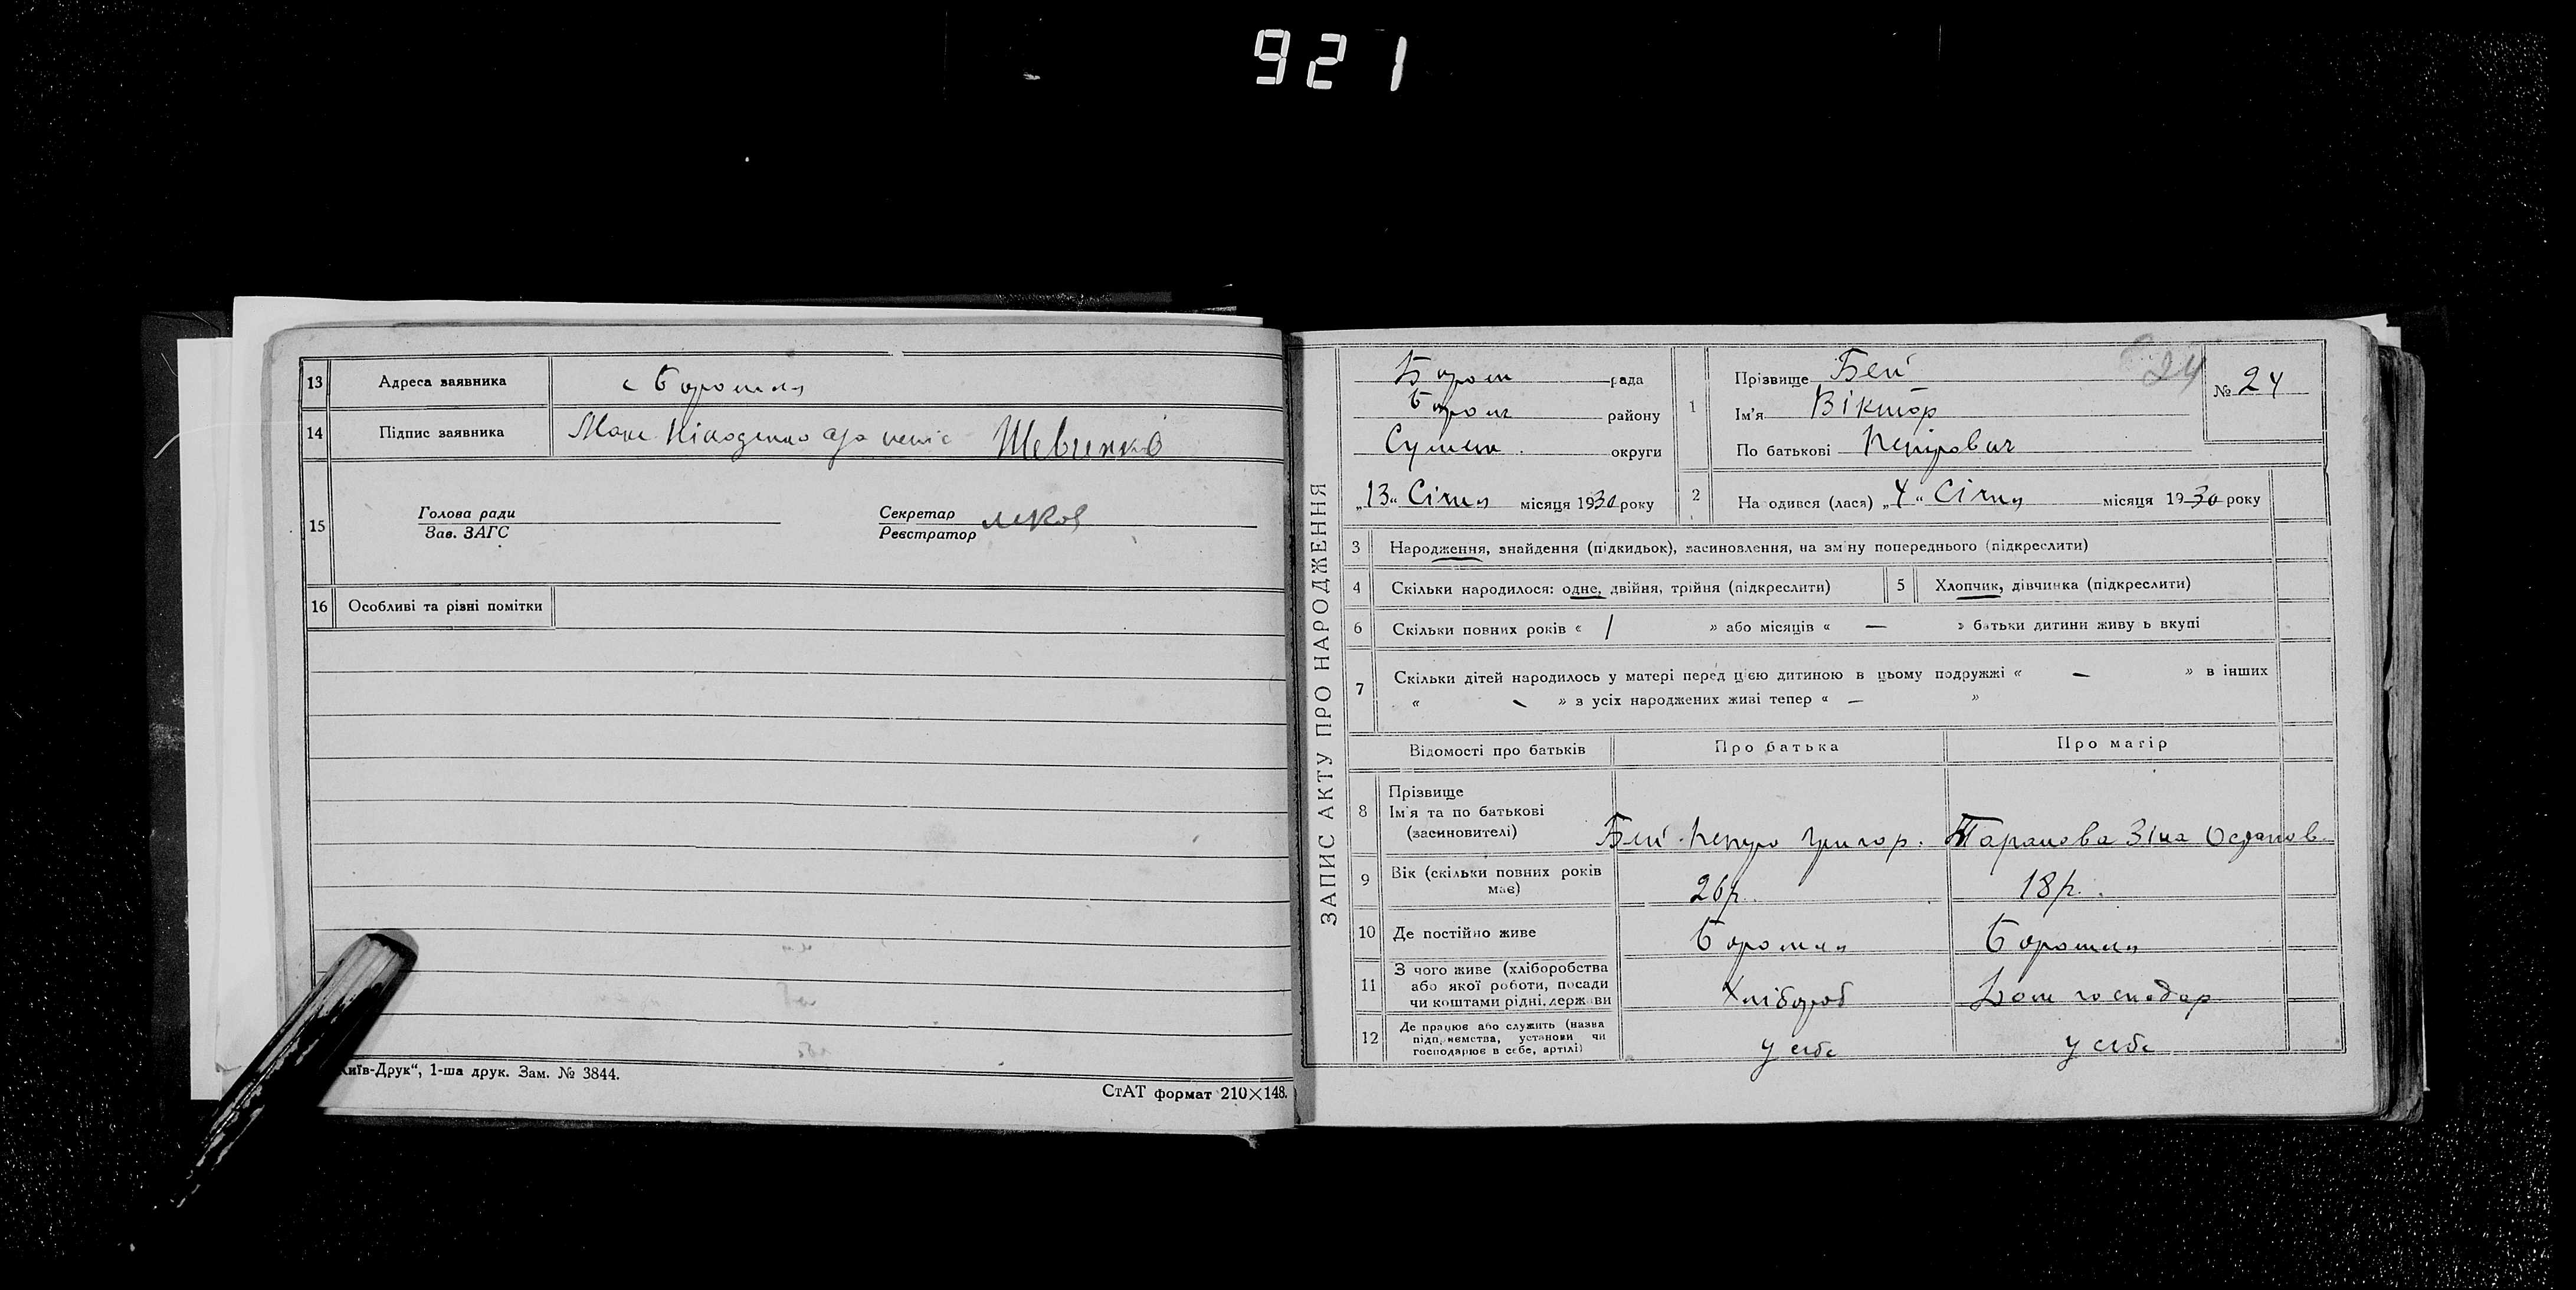 921
13 Адреса заявника с Боромля
14 Підпис заявника Шевченко
15 Голова ради
Зав. ЗАГС
Секретар
Реєстратор
16 Особливі та різні помітки
Київ-Друк“, 1-ша друк. Зам. № 3844.
СтАТ формат 210×148.
ЗАПИС АКТУ ПРО НАРОДЖЕННЯ
Бором рада
Бором району
Сумськ округи
„13“ Січня місяця 1930 року
24
№ 24
1 Прізвище Бей
Ім'я Віктор
По батькові Петрович
2 На одився (лася) „4“ Січня місяця 1930 року
3 Народження, знайдення (підкидьок), засиновлення, на зміну попереднього (підкреслити)
4 Скільки народилося: одне, двійня, трійня (підкреслити)
5 Хлопчик, дівчинка (підкреслити)
6 Скільки повних років « 1 » або місяців « — » батьки дитини живуть вкупі
7 Скільки дітей народилось у матері перед цією дитиною в цьому подружжі « — » в інших
« — » з усіх народжених живі тепер « — »
Відомості про батьків Про батька Про матір
8 Прізвище
Ім'я та по батькові
(засиновителі)
Бей Петро Григор. Таранова Зіна Осипов
9 Вік (скільки повних років
має)
26 р. 18 р.
10 Де постійно живе Боромля Боромля
11 З чого живе (хліборобства
або якої роботи, посади
чи коштами рідні, держави
Хлібороб Дом господар
12 Де працює або служить (назва
підприємства, установи чи
господарює в себе, артілі)
у себе у себе